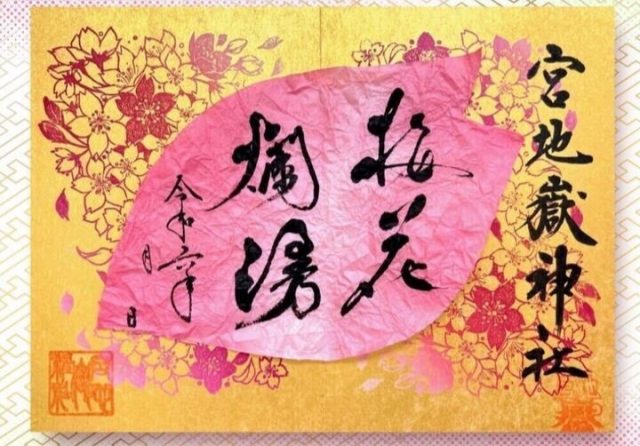 宮地嶽神社
桜花
爛漫
令和六年
月
日